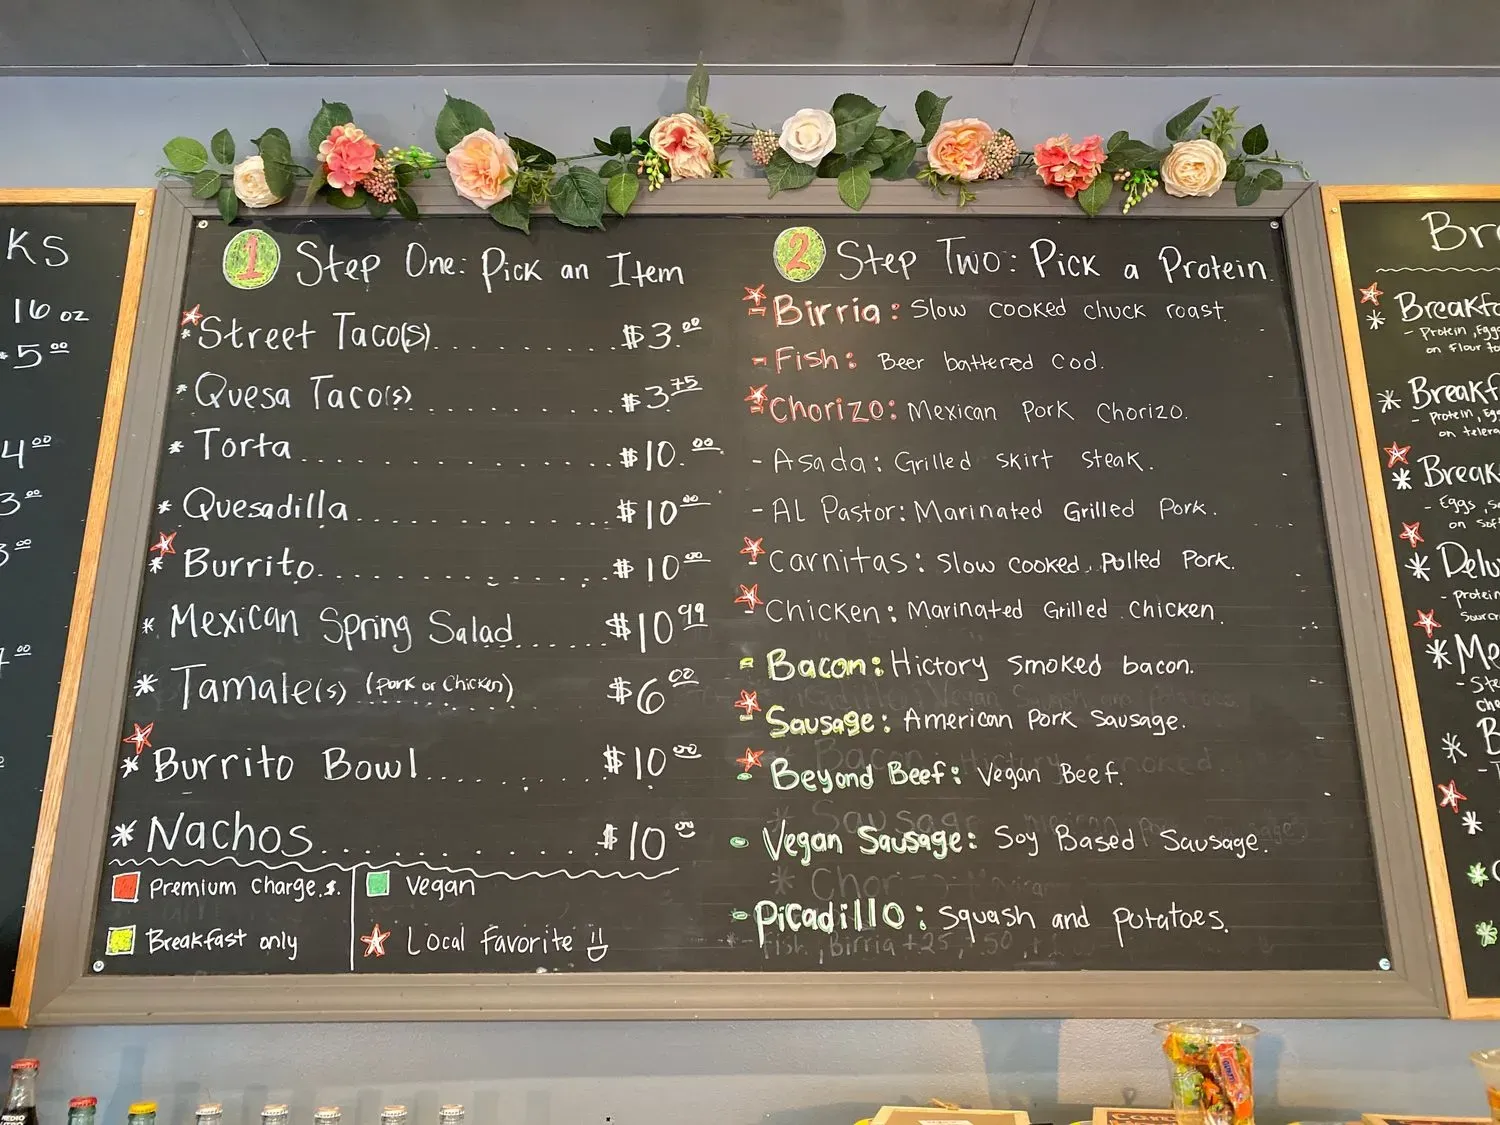 KS
16 oz
5.00
4.00
3.00
1 Step One: Pick an Item
*Street Taco(s)..........$3.00
*Quesa Taco(s)..........$3.75
*Torta..........$10.00
*Quesadilla..........$10.00
*Burrito..........$10.00
*Mexican Spring Salad......$10.99
*Tamale(s) (Pork or Chicken)..........$6.00
*Burrito Bowl..........$10.00
*Nachos..........$10.00
Premium Charge.$.
Vegan
Breakfast only
Local Favorite
2 Step Two: Pick a Protein
-Birria: Slow cooked chuck roast.
-Fish: Beer battered Cod.
-Chorizo: Mexican Pork Chorizo.
-Asada: Grilled skirt steak.
-AL Pastor: Marinated Grilled Pork.
-Carnitas: Slow cooked Pulled Pork.
-Chicken: Marinated Grilled Chicken
-Bacon: Hictory smoked bacon.
-Sausage: American Pork Sausage.
-Beyond Beef: Vegan Beef.
-Vegan Sausage: Soy Based Sausage.
-Picadillo: Squash and Potatoes.
Fish, Birria +.25, .50
Bre
*Breakfa
-Protein, Eggs
on flour to
*Breakf
-Protein, Egg
on telera
*Break
-Eggs, S
on sof
*Delu
-protein
Sour cr
*Me
-Ste
che
*B